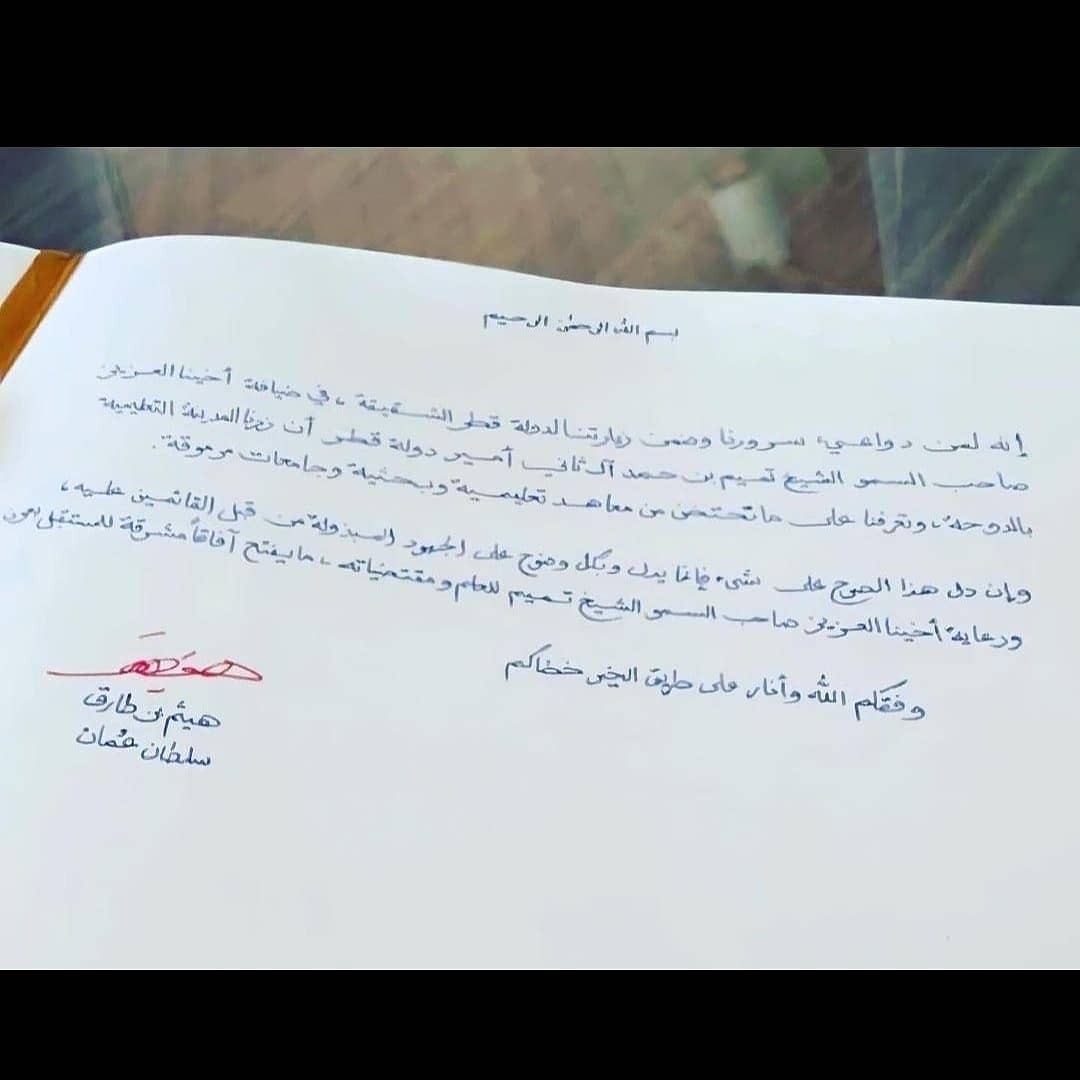 بسم الله الرحمن الرحيم
إنه لمن دواعي سرورنا وضمن زيارتنا لدولة قطر الشقيقة، في ضيافة أخينا العزيز
صاحب السمو الشيخ تميم بن حمد آل ثاني أمير دولة قطر أن زرنا المدينة التعليمية
بالدوحة، وتعرفنا على ما تحتضن من معاهد تعليمية وبحثية وجامعات مرموقة.
وإن دل هذا الصرح على شيء فإنما يدل وبكل وضوح على الجهود المبذولة من قبل القائمين عليه،
ورعاية أخينا العزيز صاحب السمو الشيخ تميم للعلم ومقتضياته، ما يفتح آفاقاً مشرقة للمستقبل
وفقكم الله وأنار على طريق الخير خطاكم
هيثم بن طارق
سلطان عُمان